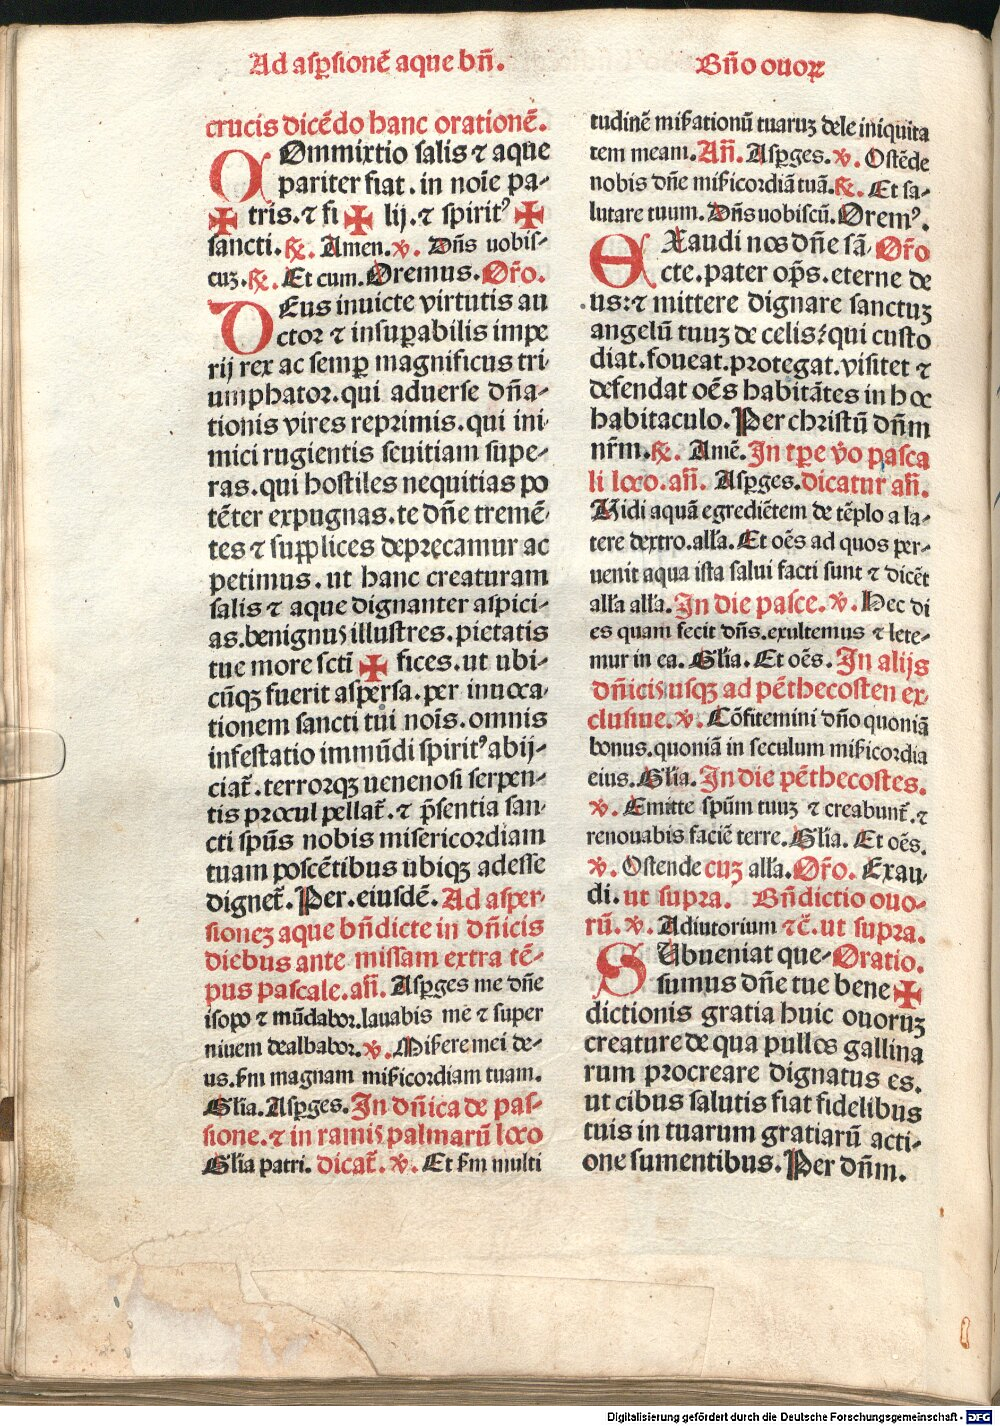 Ad asꝑsionē aque bn̄.
Bn̄o ouoꝝ
crucis dicēdo hanc orationē.
COmmixtio salis ⁊ aque
pariter fiat. in noīe pa-
✠ tris. ⁊ fi ✠ lij. ⁊ spiritꝰ ✠
sancti. ℟. Amen. ℣. Dn̄s uobis-
cuꝫ. ℟. Et cum. Oremus. Or̄o.
DEus inuicte virtutis au
ctor ⁊ insuꝑabilis impe
rij rex ac semꝑ magnificus tri-
umphator. qui aduerse dn̄a-
tionis vires reprimis. qui ini-
mici rugientis seuitiam supe-
ras. qui hostiles nequitias po
tēter expugnas. te dn̄e tremē-
tes ⁊ supplices deprecamur ac
petimus. ut hanc creaturam
salis ⁊ aque dignanter aspici-
as. benignus illustres. pietatis
tue more sctī ✠ fices. ut ubi-
cūqꝫ fuerit aspersa. per inuoca-
tionem sancti tui noīs. omnis
infestatio immūdi spiritꝰ abij-
ciat᷑. terrorqꝫ uenenosi serpen-
tis procul pellat᷑. ⁊ p̄sentia san-
cti spūs nobis misericordiam
tuam poscētibus ubiqꝫ adesse
dignet᷑. Per. eiusdē. Ad asper-
sionez aque bn̄dicte in dn̄icis
diebus ante missam extra tē-
pus pascale. an̄. Asꝑges me dn̄e
isopo ⁊ mūdabor. lauabis me ⁊ super
niuem dealbabor. ℣. Misẜere mei de-
us. ẜm magnam misẜicordiam tuam.
Gl̄ia. Asꝑges. In dn̄ica de pas-
sione. ⁊ in ramis palmarū loco
Gl̄ia patri. dicat᷑. ℣. Et ẜm multi
tudinē misẜationū tuaruꝫ dele iniquita
tem meam. An̄. Asꝑges. ℣. Ostēde
nobis dn̄e misẜicordiā tuā. ℟. Et sa-
lutare tuum. Dn̄s uobiscū. Oremꝰ.
EXaudi nos dn̄e sā Or̄o
cte. pater op̄s. eterne de
us: ⁊ mittere dignare sanctuꝫ
angelū tuuꝫ de celis: qui custo
diat. foueat. protegat. visitet ⁊
defendat oēs habitātes in hoc
habitaculo. Per christū dn̄m
nr̄m. ℟. Amē. In tp̄e v̊o pasca
li loco. an̄. Asꝑges. dicatur an̄.
Vidi aquā egrediētem de tēplo a la-
tere dextro. all̄a. Et oēs ad quos per-
uenit aqua ista salui facti sunt ⁊ dicēt
all̄a all̄a. In die pasce. ℣. Hec di
es quam fecit dn̄s. exultemus ⁊ lete-
mur in ea. Gl̄ia. Et oēs. In alijs
dn̄icis usqꝫ ad pēthecosten ex-
clusiue. ℣. Cōfitemini dn̄o quoniā
bonus. quoniā in seculum misẜicordia
eius. Gl̄ia. In die pēthecostes.
℣. Emitte spūm tuuꝫ ⁊ creabunt᷑. ⁊
renouabis faciē terre. Gl̄ia. Et oēs.
℣. Ostende cuꝫ all̄a. Or̄o. Exau-
di. ut supra. Bn̄dictio ouo-
rū. ℣. Adiutorium ⁊c̄. ut supra.
SUbueniat que- Oratio.
sumus dn̄e tue bene ✠
dictionis gratia huic ouoruꝫ
creature de qua pullos gallina
rum procreare dignatus es.
ut cibus salutis fiat fidelibus
tuis in tuarum gratiarū acti-
one sumentibus. Per dn̄m.
Digitalisierung gefördert durch die Deutsche Forschungsgemeinschaft - DFG